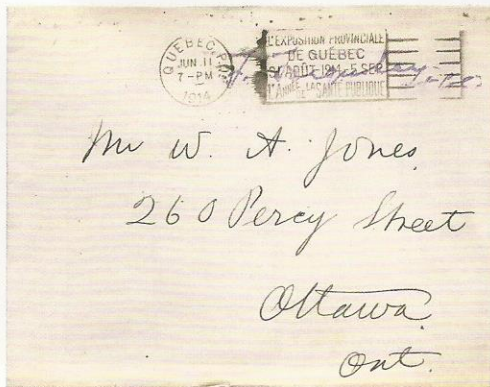 QUEBEC, P.Q.
JUN. 11
7-PM
1914
L'EXPOSITION PROVINCIALE
DE QUÉBEC
31 AOÛT 1914 - 5 SEP.
DE LA SANTÉ PUBLIQUE
Mr W. A. Jones
260 Percy Street
Ottawa
Ont.